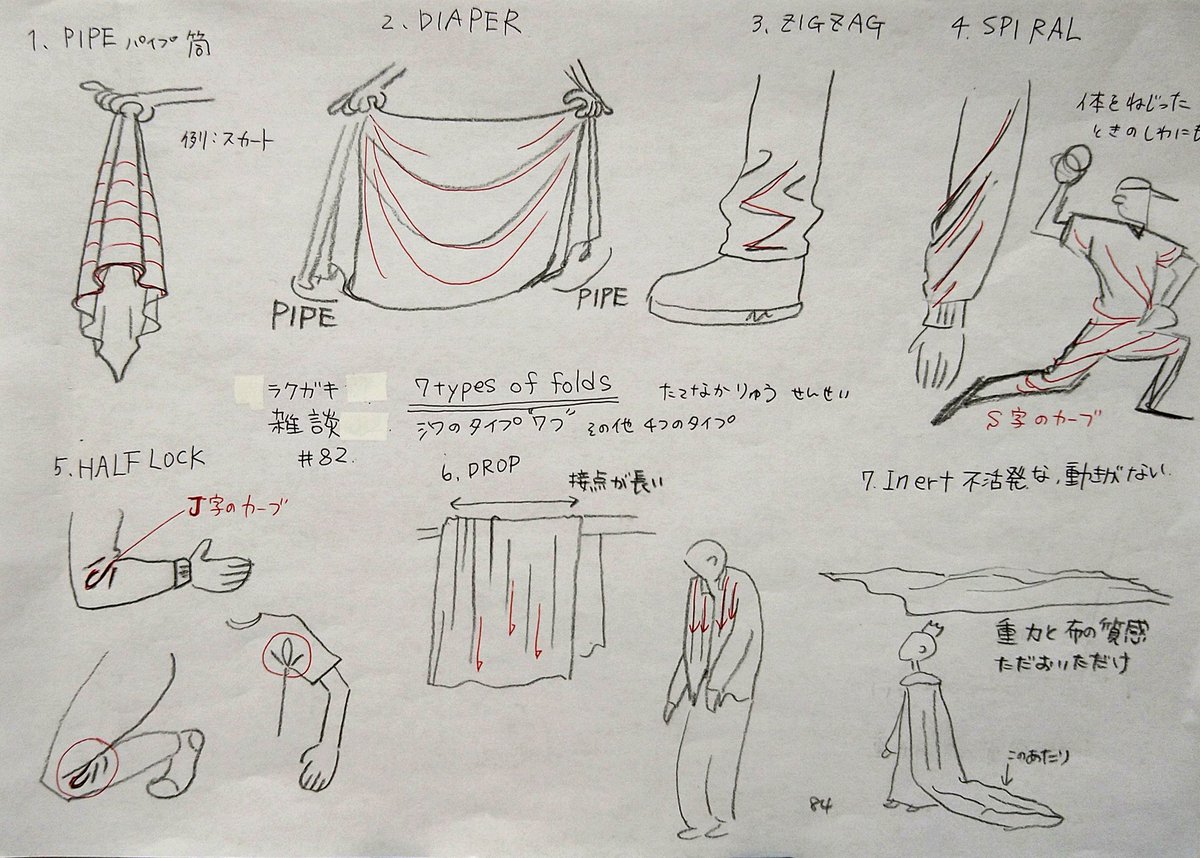 1. PIPE パイプ 筒
例：スカート
2. DIAPER
PIPE
PIPE
3. ZIGZAG
4. SPIRAL
体をねじった
ときのしわにも
S字のカーブ
ラクガキ
雑談
#82.
7types of folds
たてなかりゅう せんせい
シワのタイプ"7ブ" その他 4つのタイプ
5. HALF LOCK
J字のカーブ
6. DROP
接点が長い
7. Inert 不活発な, 動きがない.
重力と布の質感
ただおいただけ
このあたり
84